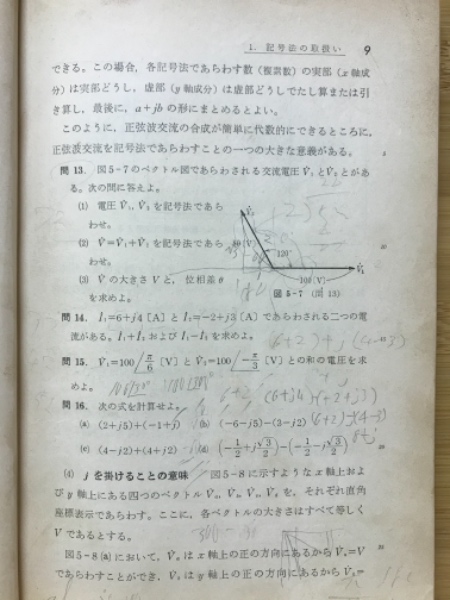 1. 記号法の取扱い 9
できる。この場合，各記号法であらわす数（複素数）の実部（x 軸成
分）は実部どうし，虚部（y 軸成分）は虚部どうしでたし算または引
き算し，最後に，a+jb の形にまとめるとよい。
このように，正弦波交流の合成が簡単に代数的にできるところに，
正弦波交流を記号法であらわすことの一つの大きな意義がある。 5
問 13. 図5-7のベクトル図であらわされる交流電圧 V̇₁ とV̇₂ とがあ
る。次の問に答えよ。
(1) 電圧 V̇₁, V̇₂ を記号法であら
わせ。
(2) V̇=V̇₁+V̇₂ を記号法であら
わせ。
(3) V̇ の大きさ V と，位相差 θ
を求めよ。
V̇₂
120°
V̇₁
100〔V〕
10
図 5-7 （問 13）
問 14. İ₁=6+j4〔A〕と İ₂=-2+j3〔A〕であらわされる二つの電
流がある。İ₁+İ₂ および İ₁-İ₂ を求めよ。
問 15. V̇₁=100∠π/6〔V〕と V̇₂=100∠-π/3〔V〕との和の電圧を求
めよ。
問 16. 次の式を計算せよ。
(a) (2+j5)+(-1+j) (b) (-6-j5)-(3-j2)
(c) (4-j2)+(4+j2) (d) (-1/2+j√3/2)-(-1/2-j√3/2) 20
(4) j を掛けることの意味 図5-8に示すような x 軸上およ
び y 軸上にある四つのベクトル を，それぞれ直角
座標表示であらわす。ここに，各ベクトルの大きさはすべて等しく
V であるとする。
図5-8(a)において，V̇ₐ は x 軸上の正の方向にあるから V̇ₐ=V 25
であらわすことができ，V̇ᵦ は y 軸上の正の方向にあるから V̇ᵦ=